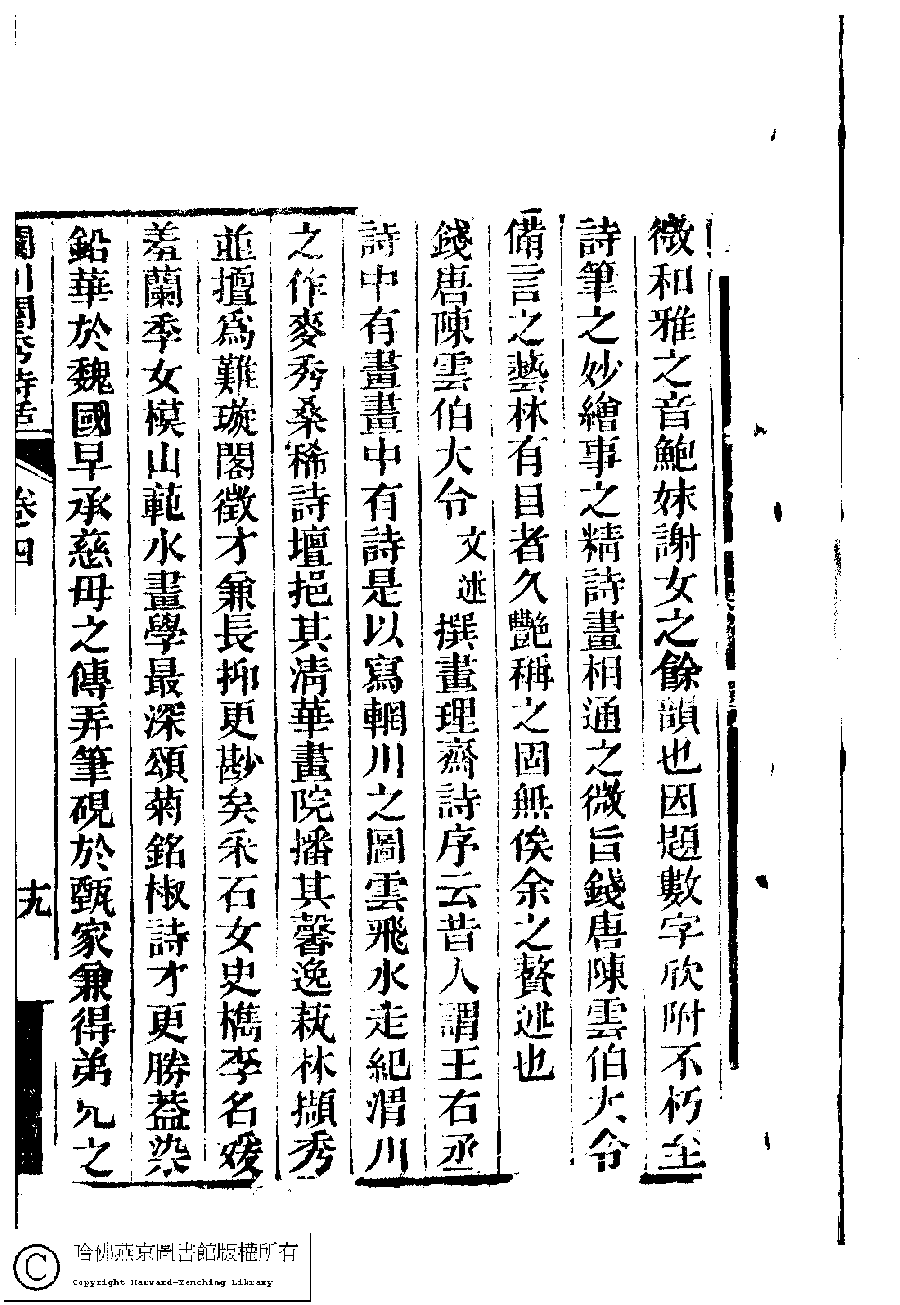 微和雅之音鮑妹謝女之餘韻也因題數字欣附不朽至
詩筆之妙繪事之精詩畫相通之微旨錢唐陳雲伯大令
備言之藝林有目者久艷稱之固無俟余之贅述也
錢唐陳雲伯大令文述撰畫理齋詩序云昔人謂王右丞
詩中有畫畫中有詩是以寫輞川之圖雲飛水走紀渭川
之作麥秀桑稀詩壇挹其清華畫院播其馨逸萩林擷秀
並擅爲難璇閣徵才兼長抑更尠矣釆石女史檇李名媛
羞蘭季女模山範水畫學最深頌菊銘椒詩才更勝葢染
鉛華於魏國早承慈母之傳弄筆硯於甄家兼得弟兄之
閨秀詩話
卷四
十九
哈佛燕京圖書館版權所有
Copyright Harvard-Yenching Library